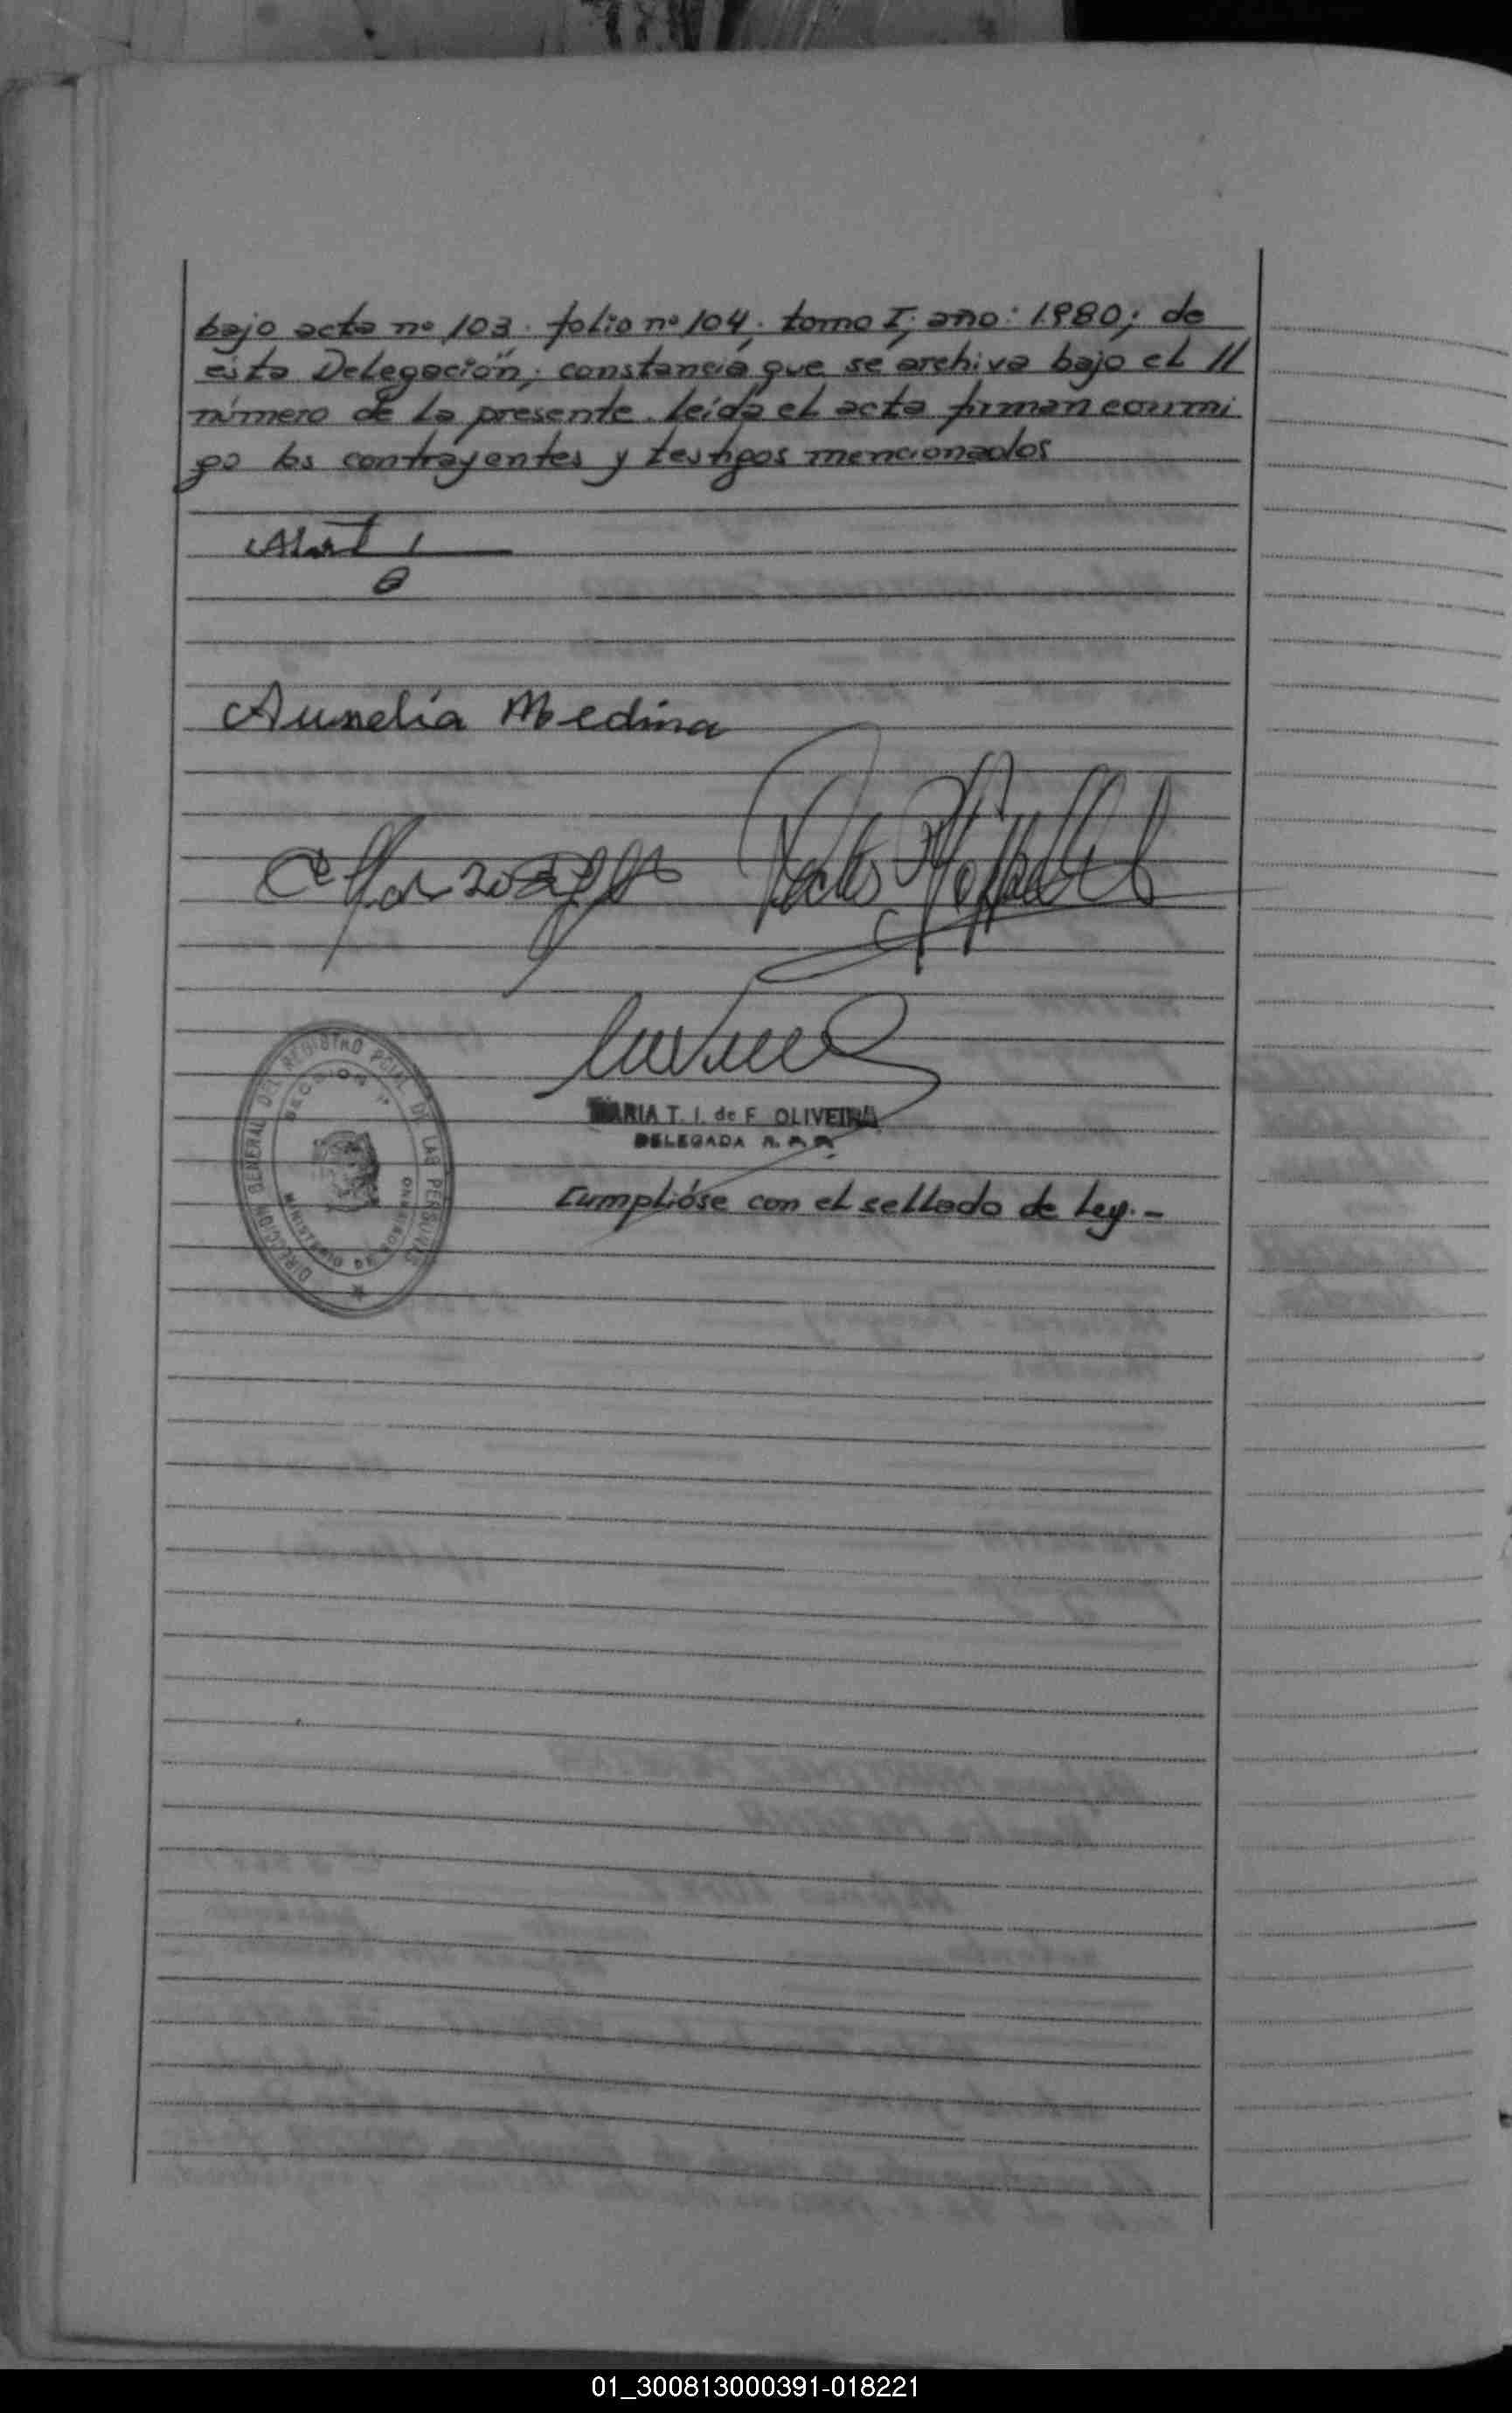 bajo acta nº 103. folio nº 104, tomo I, año: 1.980; de
esta Delegación, constancia que se archiva bajo el //
número de la presente. leída el acta firman conmi
go los contrayentes y testigos mencionados
Aurelia Medina
MARIA T. I. de F. OLIVEIRA
DELEGADA R. P. P.
Cumplióse con el sellado de Ley.-
DIRECCION GENERAL DEL REGISTRO PCIAL. DE LAS PERSONAS
SECCION
MINISTERIO DE GOBIERNO
01_300813000391-018221